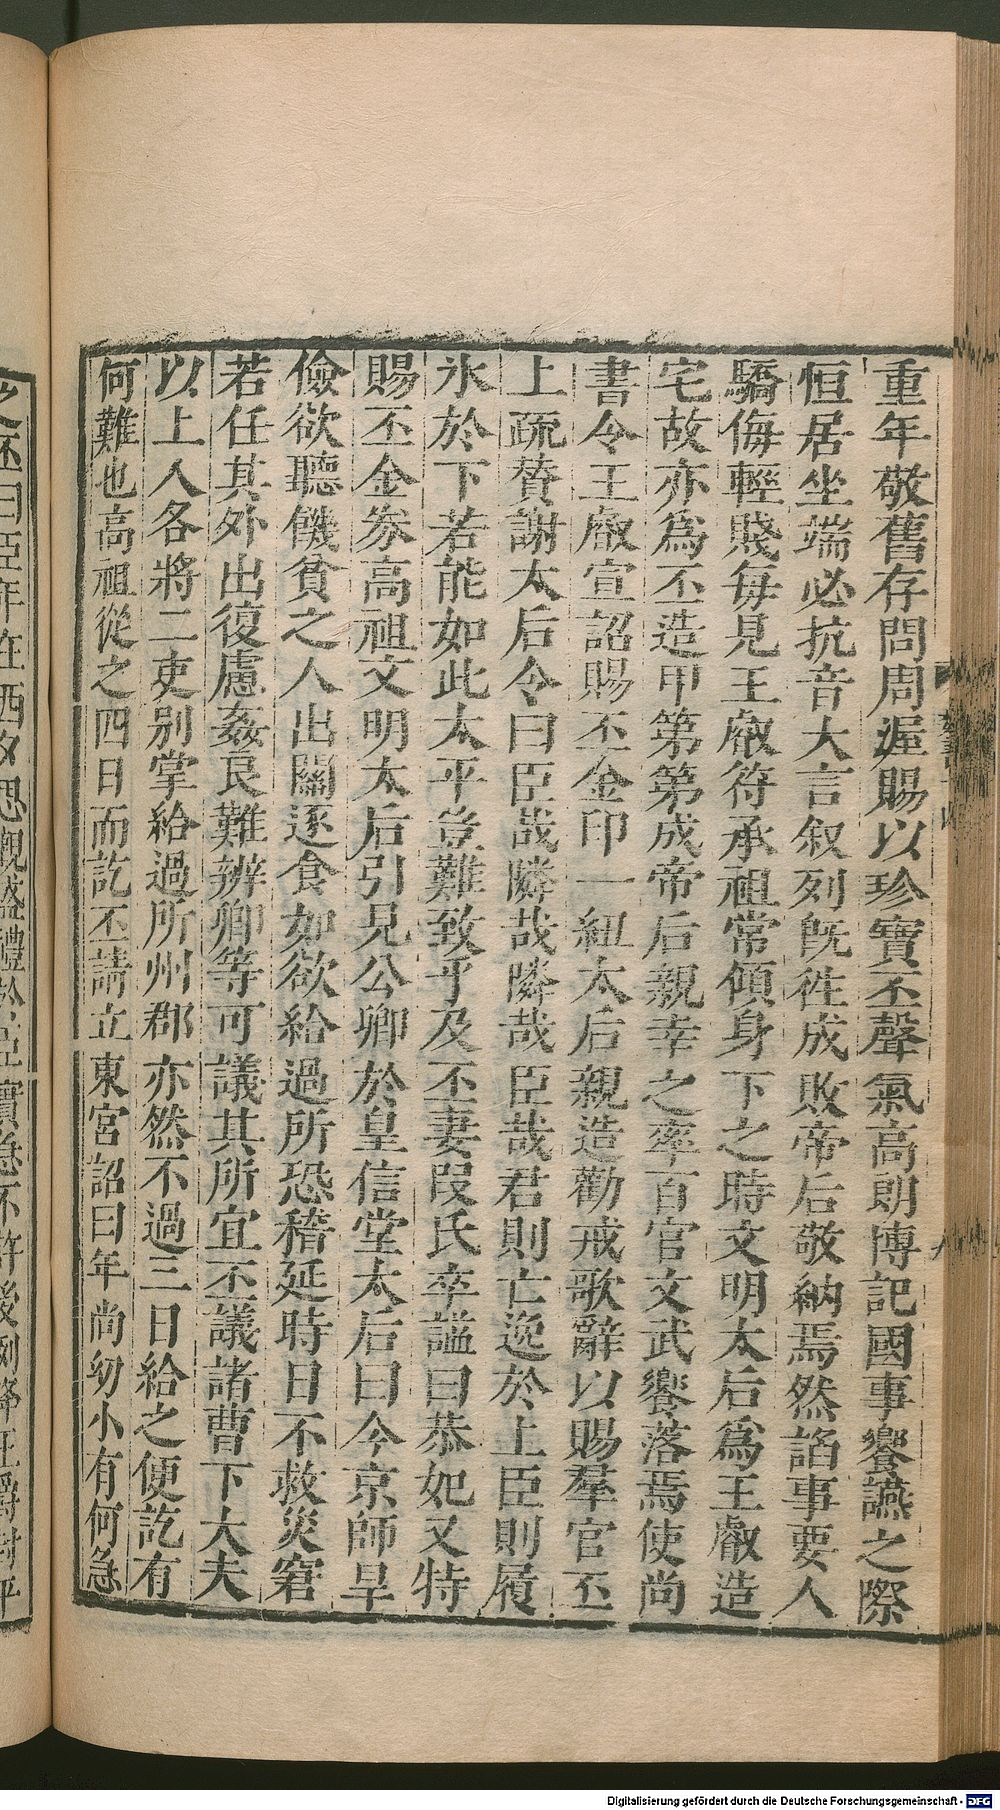 重年敬舊存問周渥賜以珍寶丕聲氣高朗博記國事饗讌之際
恒居坐端必抗音大言叙列旣徃成敗帝后敬納焉然諂事要人
驕侮輕賤每見王叡符承祖常傾身下之時文明太后爲王叡造
宅故亦爲丕造甲第第成帝后親幸之率百官文武饗落焉使尚
書令王叡宣詔賜丕金印一紐太后親造勸戒歌辭以賜羣官丕
上疏贊謝太后令曰臣哉隣哉隣哉臣哉君則亡逸於上臣則履
氷於下若能如此太平豈難致乎及丕妻段氏卒謚曰恭妃又特
賜丕金券高祖文明太后引見公卿於皇信堂太后曰今京師旱
儉欲聽饑貧之人出關逐食如欲給過所恐稽延時日不救災窘
若任其外出復慮姦良難辨卿等可議其所宜丕議諸曹下大夫
以上人各將二吏別掌給過所州郡亦然不過三日給之便訖有
何難也高祖從之四日而訖丕請立東宮詔曰年尚幼小有何急
之丕曰臣年在西夕思觀盛禮於臣實急不許後例降王爵封平
Digitalisierung gefördert durch die Deutsche Forschungsgemeinschaft - DFG